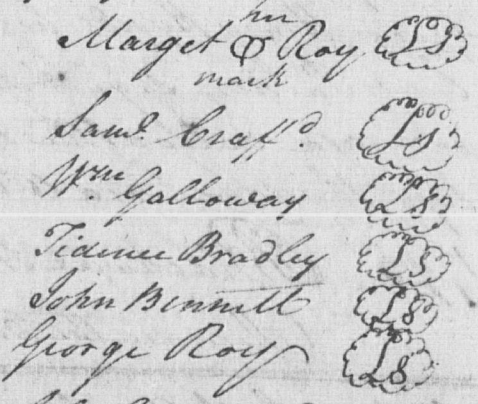 her
Marget & Roy LS
mark
Saml. Craffd. LS
Wm. Galloway LS
Tidence Bradley LS
John Bennett LS
George Roy LS